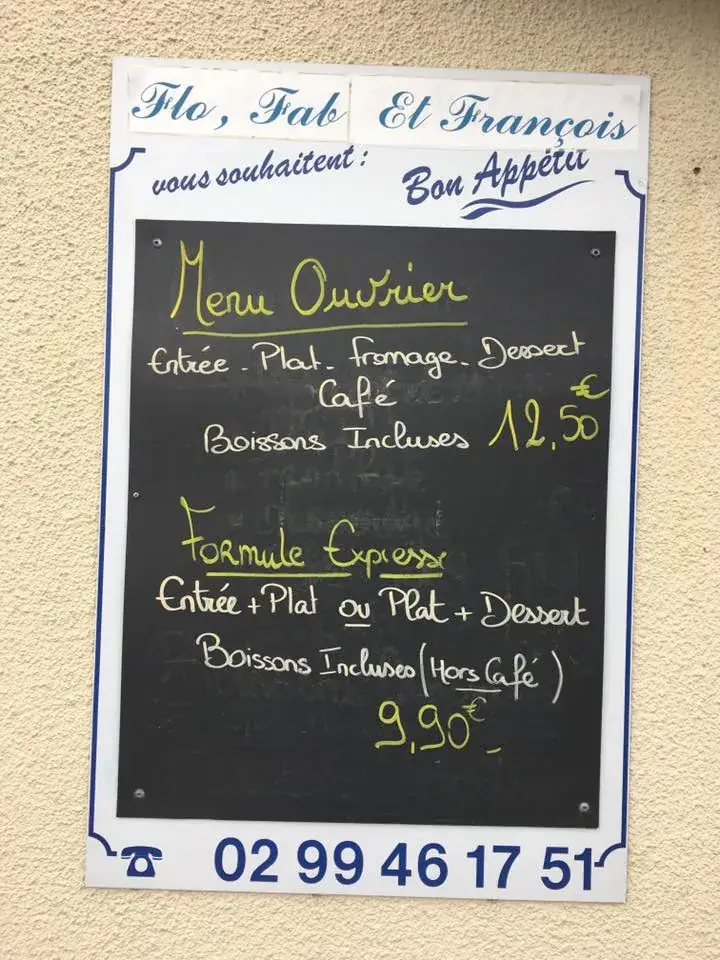 Flo, Fab Et François
vous souhaitent : Bon Appétit
Menu Ouvrier
Entrée - Plat - fromage - Dessert
Café
Boissons Incluses 12,50€
Formule Express
Entrée + Plat ou Plat + Dessert
Boissons Incluses (Hors Café)
9,90€
02 99 46 17 51